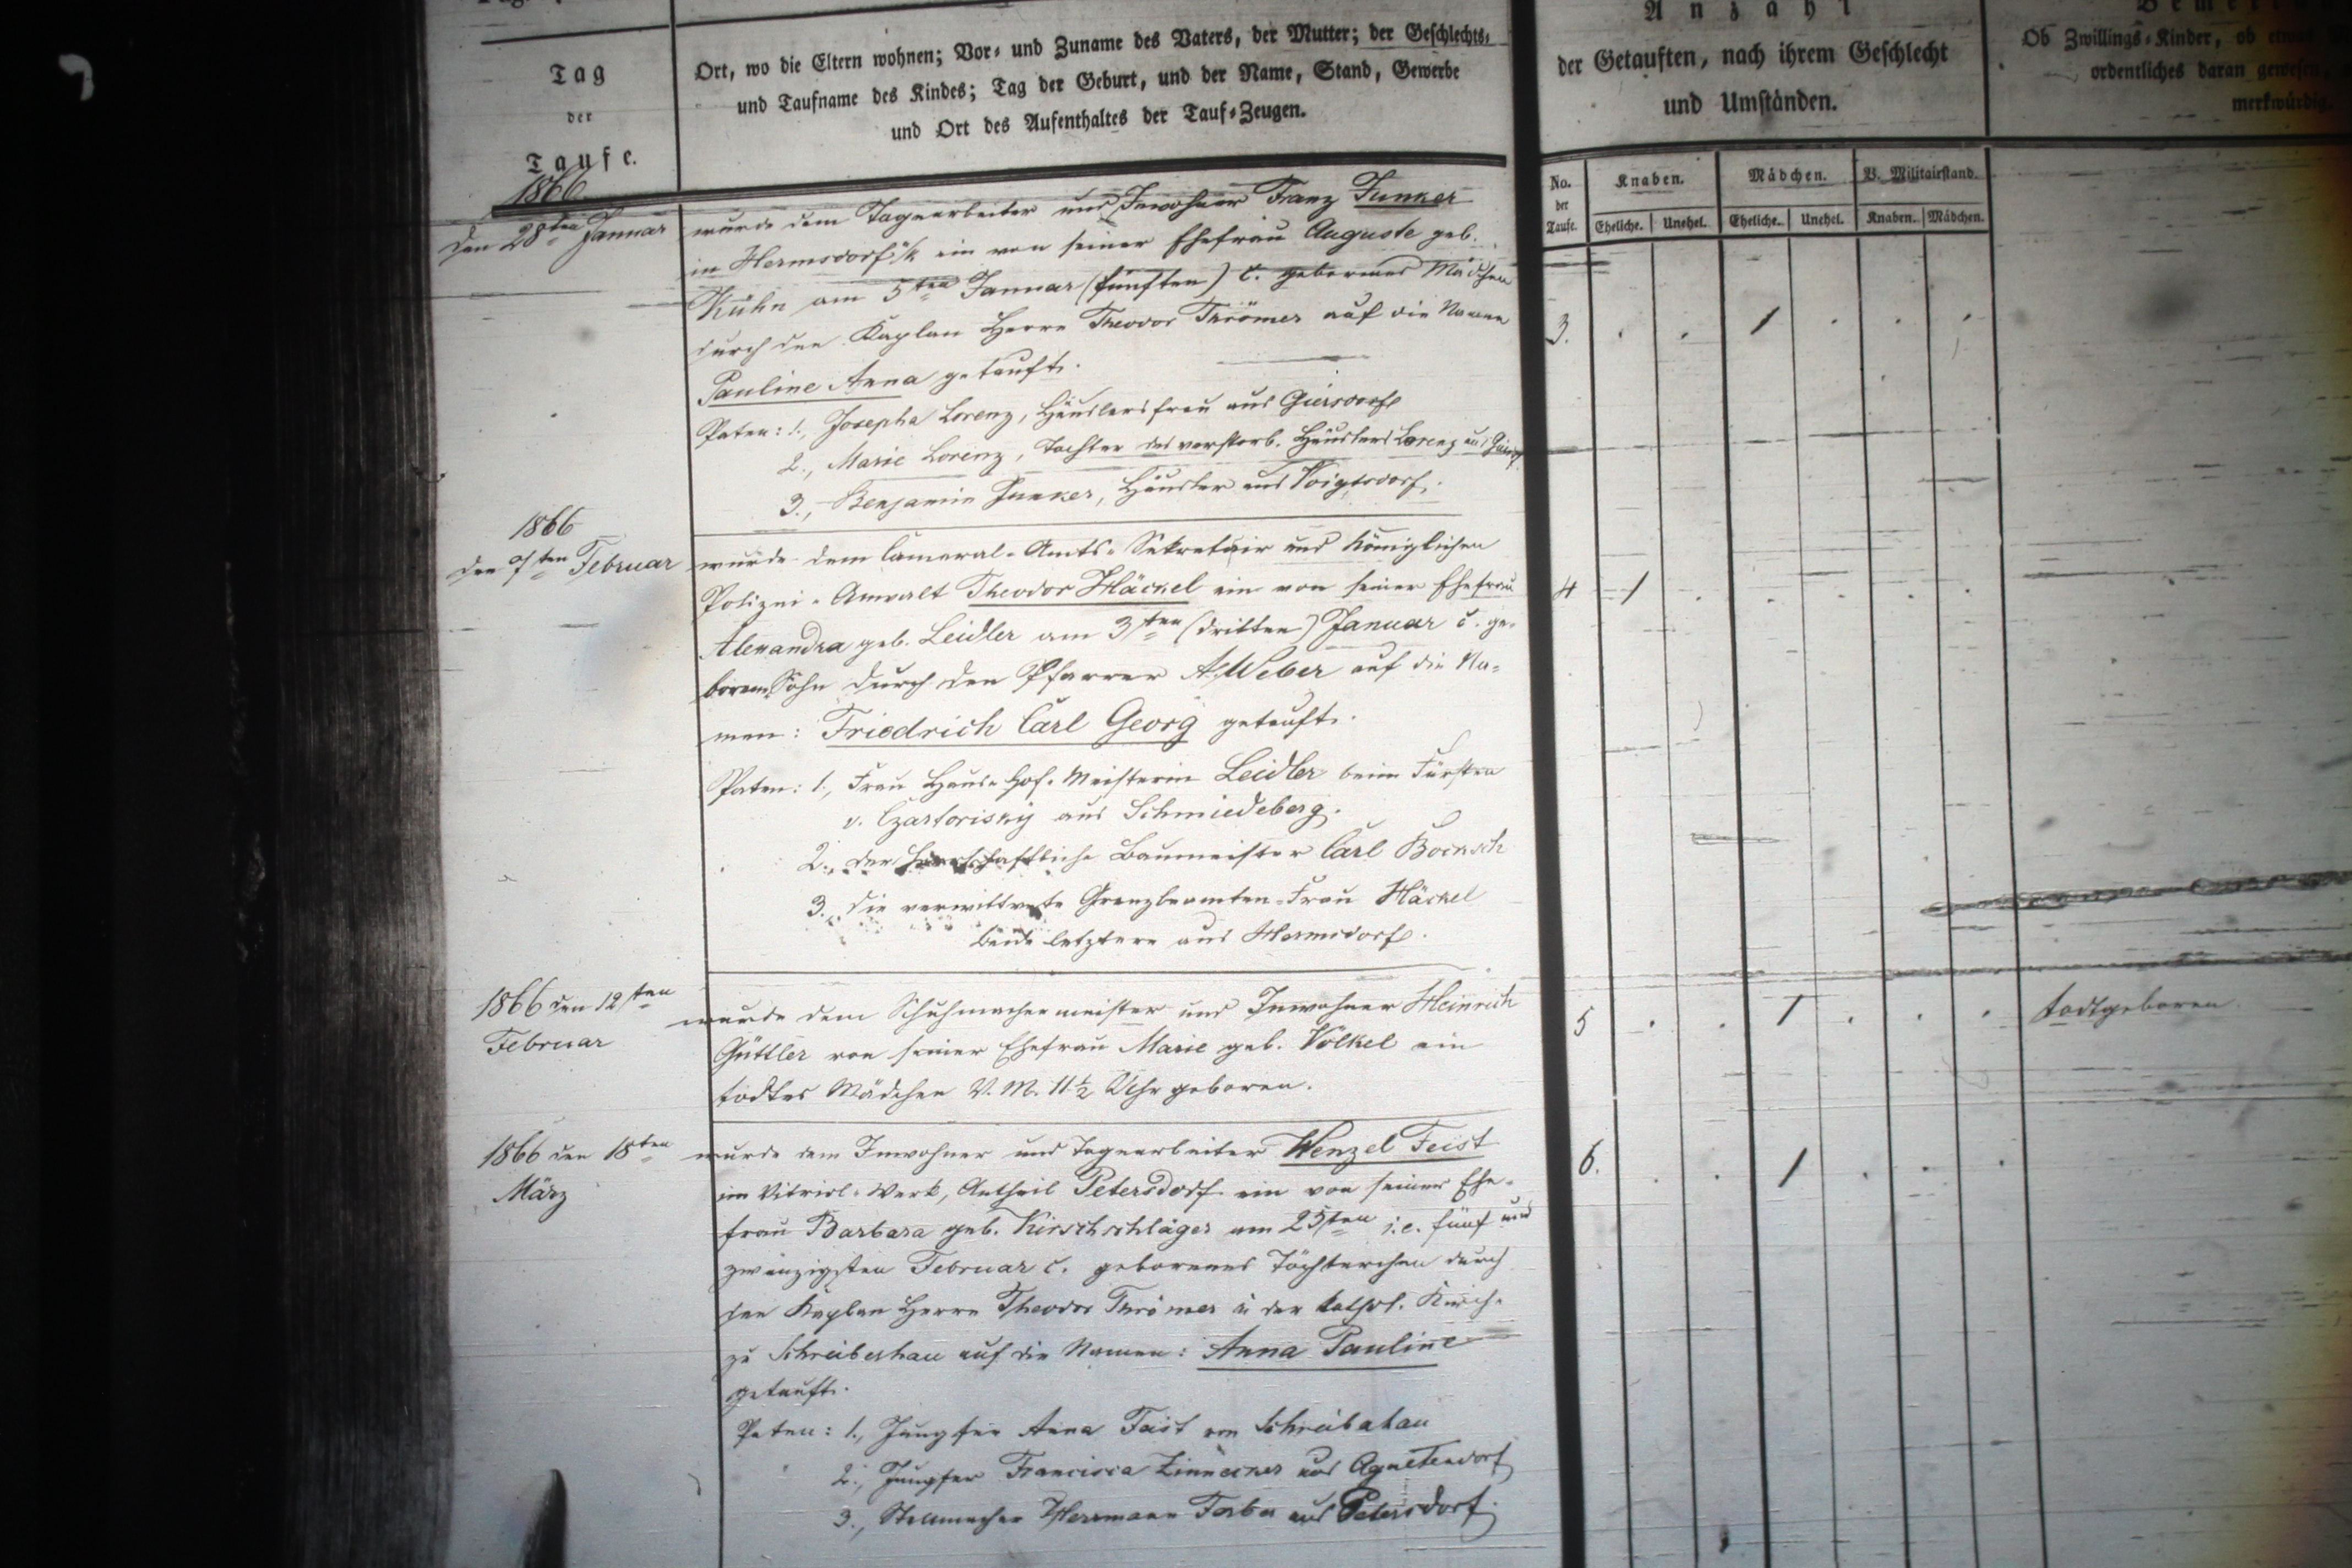 Tag
der
Taufe.
Ort, wo die Eltern wohnen; Vor- und Zuname des Vaters, der Mutter; der Geschlechts-
und Taufname des Kindes; Tag der Geburt, und der Name, Stand, Gewerbe
und Ort des Aufenthaltes der Tauf-Zeugen.
Anzahl
der Getauften, nach ihrem Geschlecht
und Umständen.
Ob Zwillings-Kinder, ob
ordentliches daran gewesen,
merkwürdig.
No.
der
Taufe.
Knaben.
Mädchen.
V. Militairstand.
Eheliche. Unehel. Eheliche. Unehel. Knaben. Mädchen.
1866
den 28ten Januar
wurde dem Tagearbeiter und Inwohner Franz Junker
in Hermsdorf u/K ein von seiner Ehefrau Auguste geb.
Kühn am 5ten Januar (fünften) c. geborenes Mädchen
durch den Kaplan Herrn Theodor Thrömer auf die Namen
Pauline Anna getauft.
Paten: 1., Josepha Lorenz, Häuslersfrau aus Giersdorf
2., Marie Lorenz, Tochter des verstorb. Häuslers Lorenz aus
3., Benjamin Junker, Häusler aus Voigtsdorf.
3. 1
1866
den 7ten Februar
wurde dem Cameral-Amts-Sekretair und Königlichen
Polizei-Anwalt Theodor Häckel ein von seiner Ehefrau
Alexandra geb. Leidler am 3ten (dritten) Januar c. ge-
borener Sohn durch den Pfarrer A. Weber auf die Na-
men: Friedrich Carl Georg getauft.
Paten: 1., Frau Haus-Hof-Meisterin Leidler beim Fürsten
v. Czartorisky aus Schmiedeberg.
2., der herrschaftliche Baumeister Carl Bocksch
3., die verwittwete Grenzbeamten-Frau Häckel
beide letztere aus Hermsdorf.
4 1
1866 den 12ten
Februar
wurde dem Schuhmachermeister und Inwohner Heinrich
Güttler von seiner Ehefrau Marie geb. Völkel ein
todtes Mädchen V. M. 11½ Uhr geboren.
5 1 todtgeboren
1866 den 18ten
März
wurde dem Inwohner und Tagearbeiter Wenzel Feist
im Vitriol-Werk, Antheil Petersdorf ein von seiner Ehe-
frau Barbara geb. Kirschschläger am 25ten i.e. fünf und
zwanzigsten Februar c. geborenes Töchterchen durch
den Kaplan Herrn Theodor Thrömer in der kathol. Kirche
zu Schreiberhau auf die Namen: Anna Pauline
getauft.
Paten: 1., Jungfer Anna Feist von Schreiberhau
2., Jungfer Francisca Zinnecker aus Agnetendorf
3., Stellmacher Herrmann aus Petersdorf.
6. 1